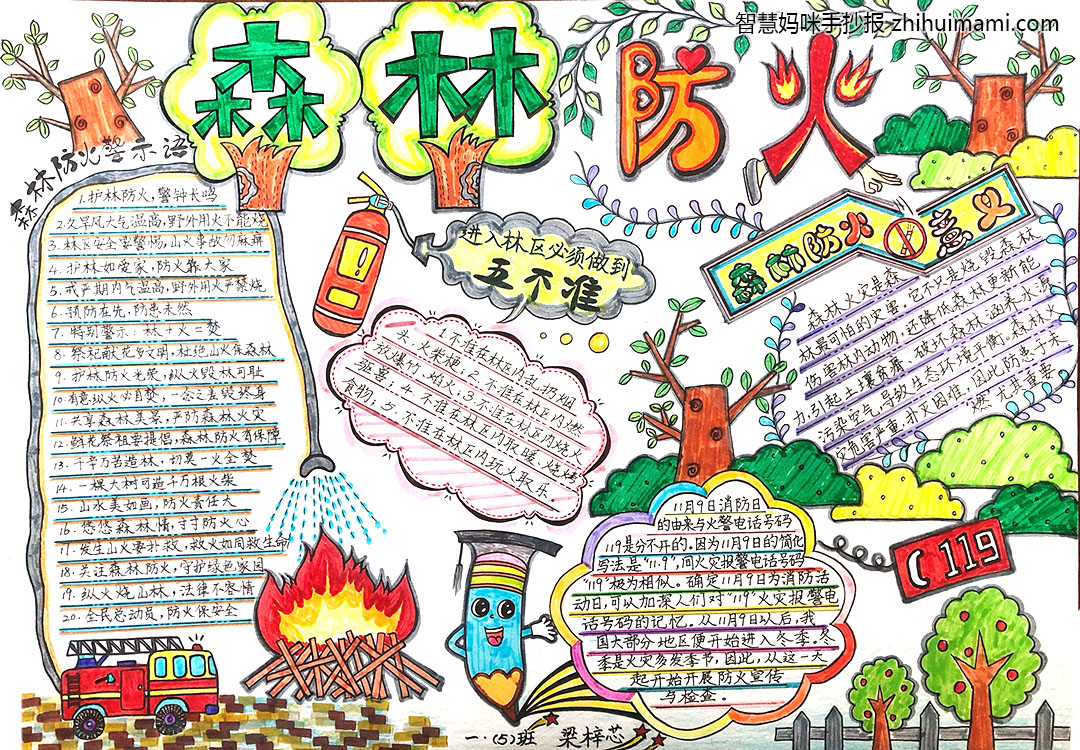 智慧妈咪手抄报-zhihuimami.com
森林防火
森林防火警示语
1.护林防火，警钟长鸣
2.久旱风大气温高,野外用火不能烧
3.林区安全要警惕,山火事故勿麻痹
4.护林如爱家,防火靠大家
5.戒严期内气温高,野外用火严禁烧
6.预防在先,防患未然
7.特别警示 林+火=焚
8.祭祀献花多文明,杜绝山火保森林
9.护林防火光荣,纵火毁林可耻
10.有意纵火必自焚,一念之差毁终身
11.共享森林美景,严防森林火灾
12.鲜花祭祖要提倡,森林防火有保障
13.千辛万苦造林,切莫一火全焚
14.一棵大树可造千万根火柴
15.山水美如画,防火责任大
16.悠悠森林情,寸寸防火心
17.发生山火要扑救,救火如同救生命
18.关注森林防火,守护绿色家园
19.纵火烧山林,法律不容情
20.全民总动员,防火保安全
进入林区必须做到
五不准
1.不准在林区内乱扔烟
头、火柴梗；2.不准在林区内燃
放爆竹、焰火；3.不准在林区内烧火
驱兽；4.不准在林区内取暖、烧烤
食物；5.不准在林区内玩火取乐。
森林防火意义
森林火灾是森
林最可怕的灾害，它不只是烧毁森林
伤害林内动物，还降低森林更新能
力,引起土壤贫瘠 破坏森林涵养水源
污染空气,导致生态环境平衡。森林火
灾危害严重,扑灭困难，因此防患于未
燃尤其重要
11月9日消防日
的由来与火警电话号码
119是分不开的。因为11月9日的简化
写法是"11.9"，同火灾报警电话号码
"119"极为相似。确定11月9日为消防活
动日,可以加深人们对"119"火灾报警电
话号码的记忆。从11月9日以后,我
国大部分地区便开始进入冬季。冬
季是火灾多发季节,因此,从这一天
起开始开展防火宣传
与检查。
119
一.(5)班 梁梓芯